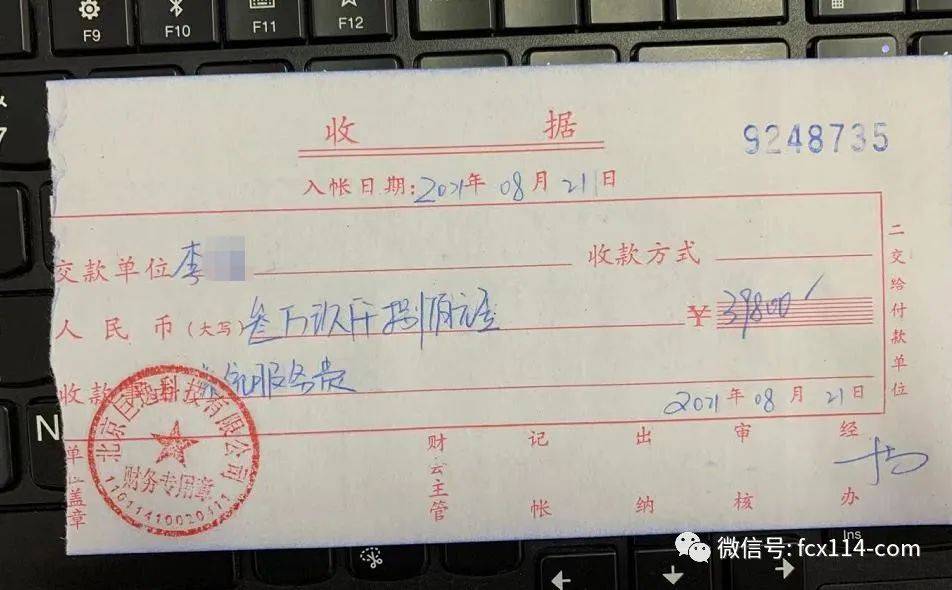 F9 F10 F11 F12
收 据
9248735
入帐日期:2021年 08月 21日
交款单位 李
收款方式
人民币(大写) 叁万玖仟捌佰元整
¥ 39800
收款 服务费
2021年 08月 21日
二交给付款单位
北京 科技有限公司
财务专用章
单位盖章
财会主管
记帐
出纳
审核
经办
N
Ins
微信号: fcx114-com